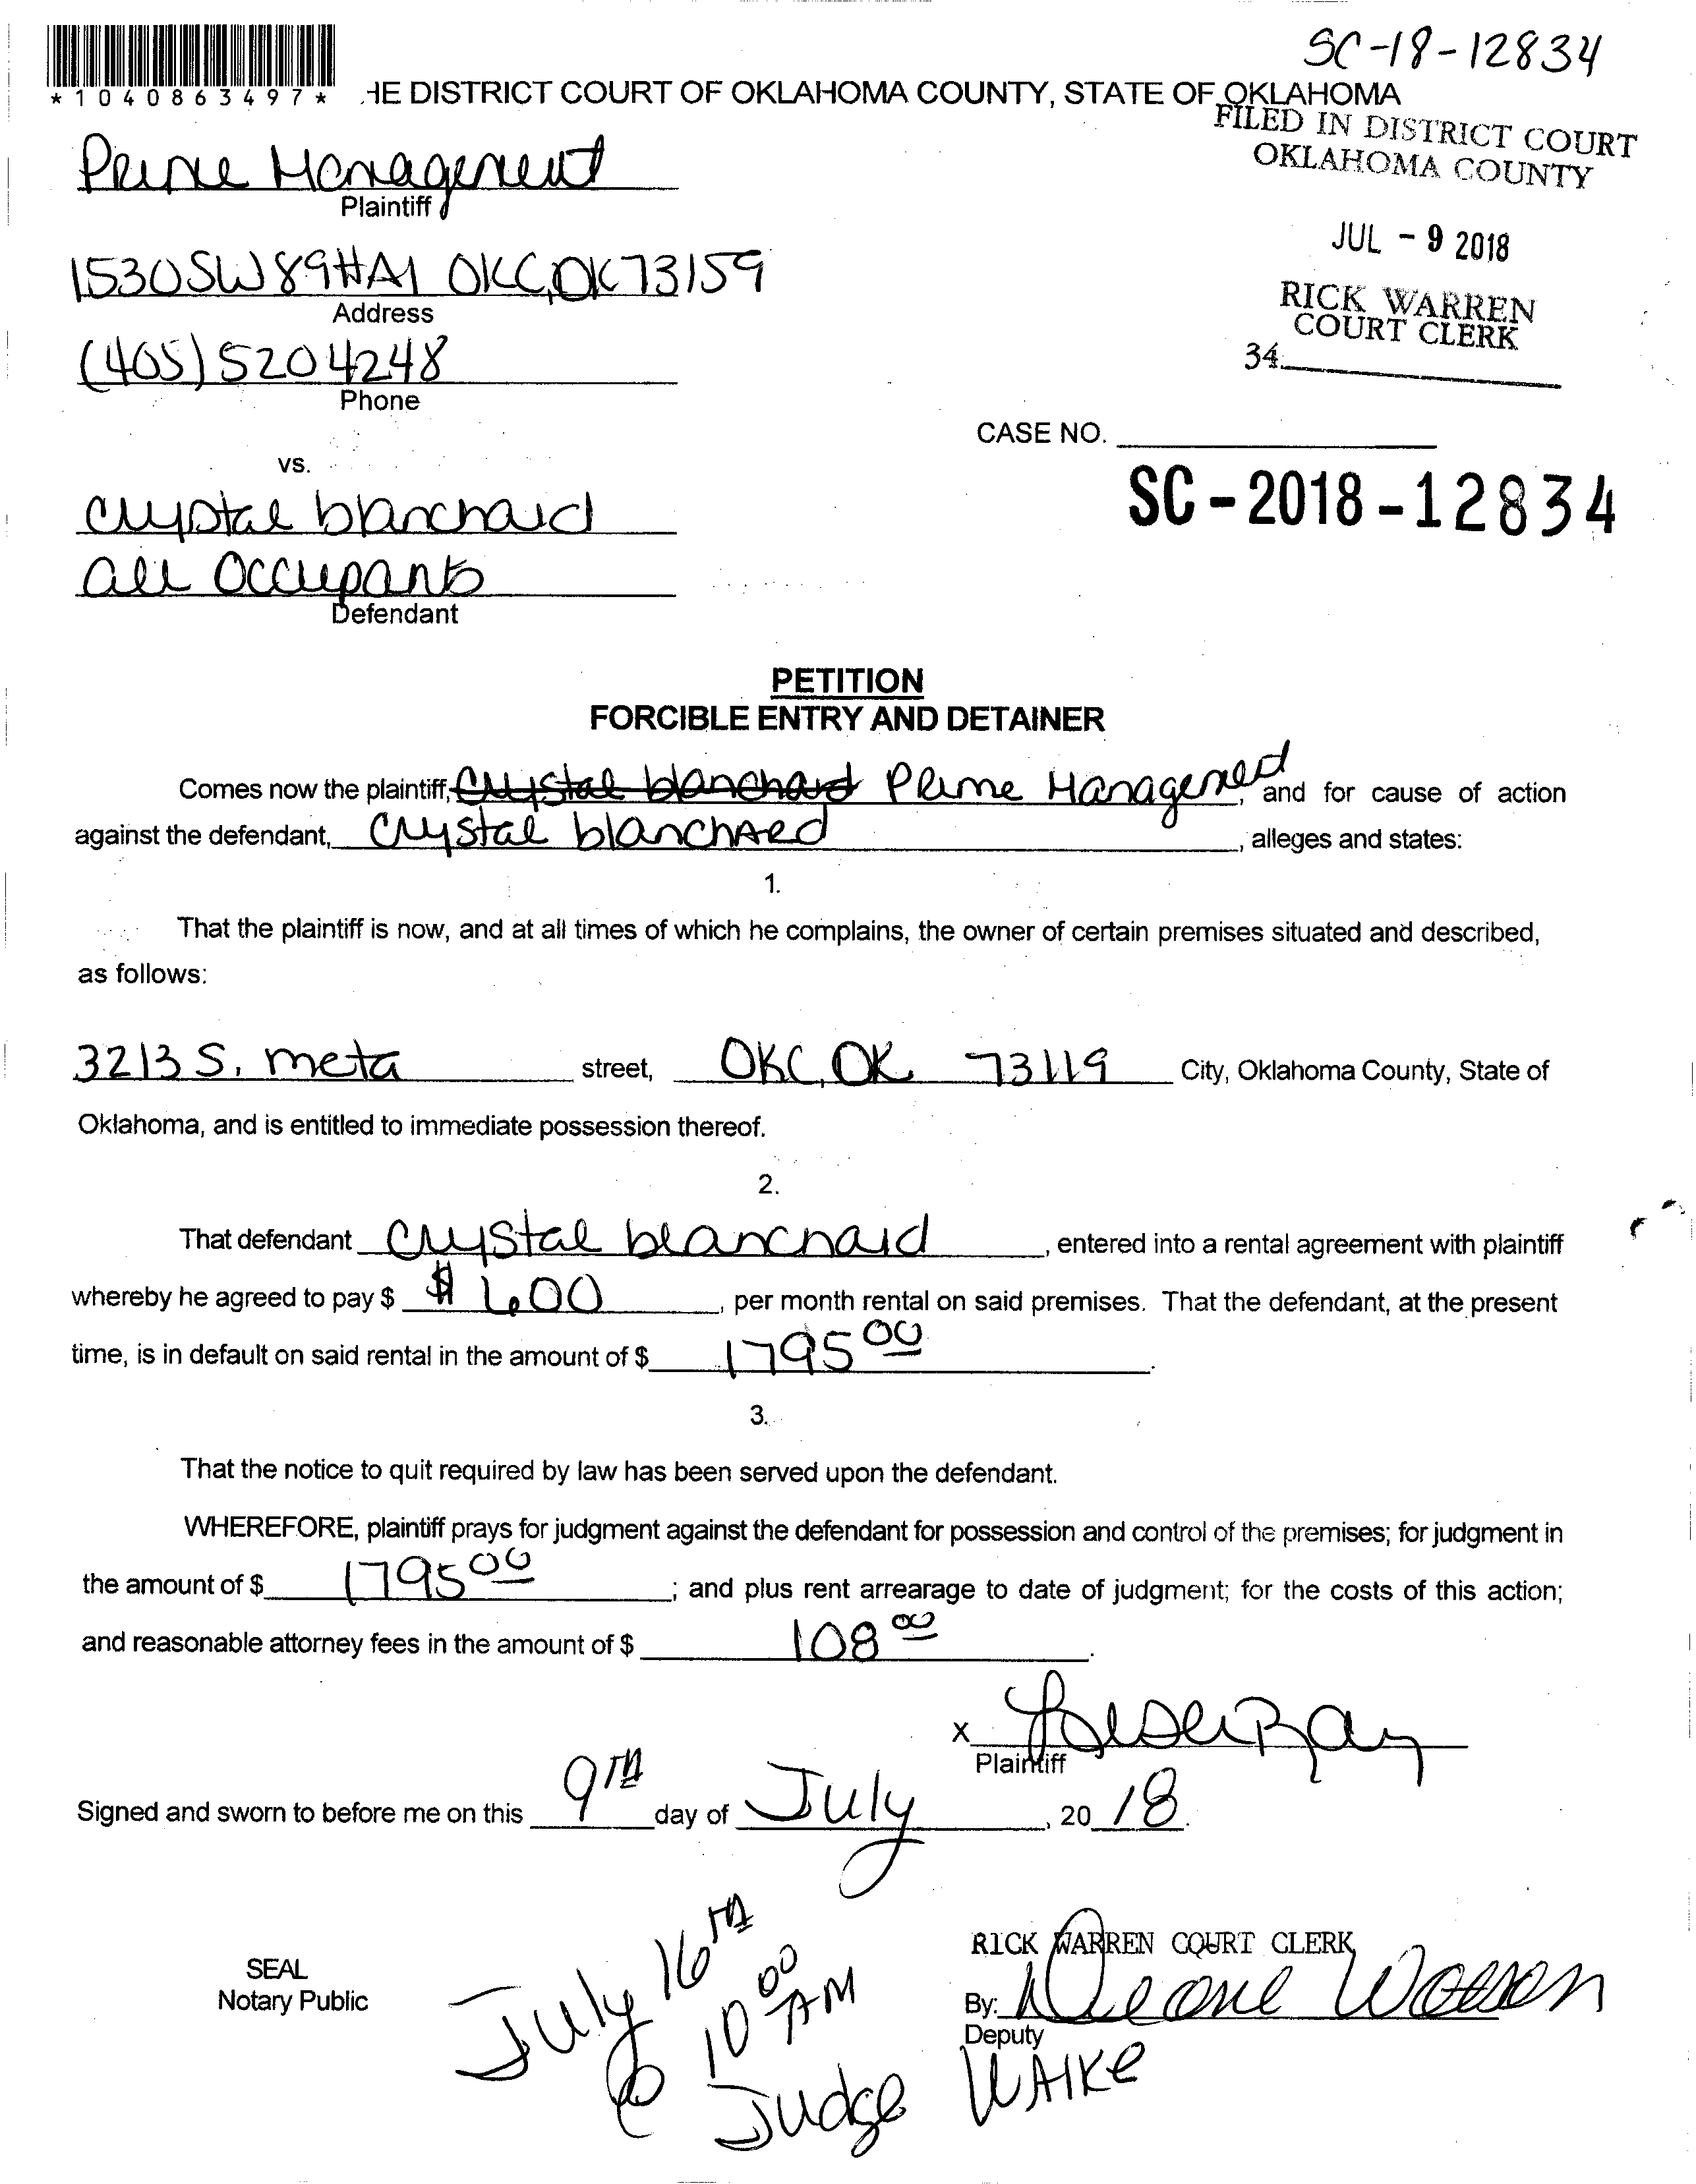 SC-18-12834
*1040863497*
HE DISTRICT COURT OF OKLAHOMA COUNTY, STATE OF OKLAHOMA
FILED IN DISTRICT COURT
OKLAHOMA COUNTY
Prime Management
Plaintiff
JUL - 9 2018
1530 SW 89 #A1 OKC, OK 73159
Address
RICK WARREN
COURT CLERK
34
(405) 520 4248
Phone
CASE NO.
vs.
SC-2018-12834
Crystal blanchard
all Occupants
Defendant
PETITION
FORCIBLE ENTRY AND DETAINER
Comes now the plaintiff, Crystal blanchard Prime Management, and for cause of action
against the defendant, Crystal blanchard, alleges and states:
1.
That the plaintiff is now, and at all times of which he complains, the owner of certain premises situated and described,
as follows:
3213 S. meta street, OKC, OK 73119 City, Oklahoma County, State of
Oklahoma, and is entitled to immediate possession thereof.
2.
That defendant Crystal blanchard, entered into a rental agreement with plaintiff
whereby he agreed to pay $ $ 600, per month rental on said premises. That the defendant, at the present
time, is in default on said rental in the amount of $ 1795 00.
3.
That the notice to quit required by law has been served upon the defendant.
WHEREFORE, plaintiff prays for judgment against the defendant for possession and control of the premises; for judgment in
the amount of $ 1795 00; and plus rent arrearage to date of judgment; for the costs of this action;
and reasonable attorney fees in the amount of $ 108 00.
X
Plaintiff
Signed and sworn to before me on this 9TH day of July, 2018.
July 16TH
@ 10 00 AM
Judge
SEAL
Notary Public
RICK WARREN COURT CLERK
By:
Deputy